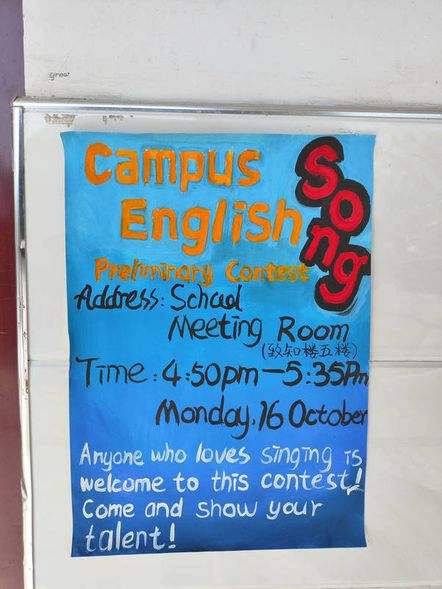 Campus
English
Song
Preliminary Contest
Address: School
Meeting Room
(致知楼五楼)
Time: 4:50pm-5:35Pm
Monday, 16 October
Anyone who loves singing is
welcome to this contest!
Come and show your
talent!